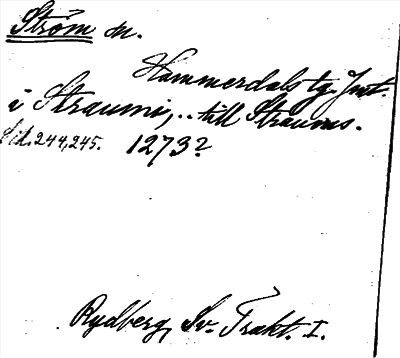 Ström sn.
Hammerdals tg. Jmt.
i Straumi, .. till Straums.
Sid. 244, 245. 1273?
Rydberg, Sv. Trakt. I.